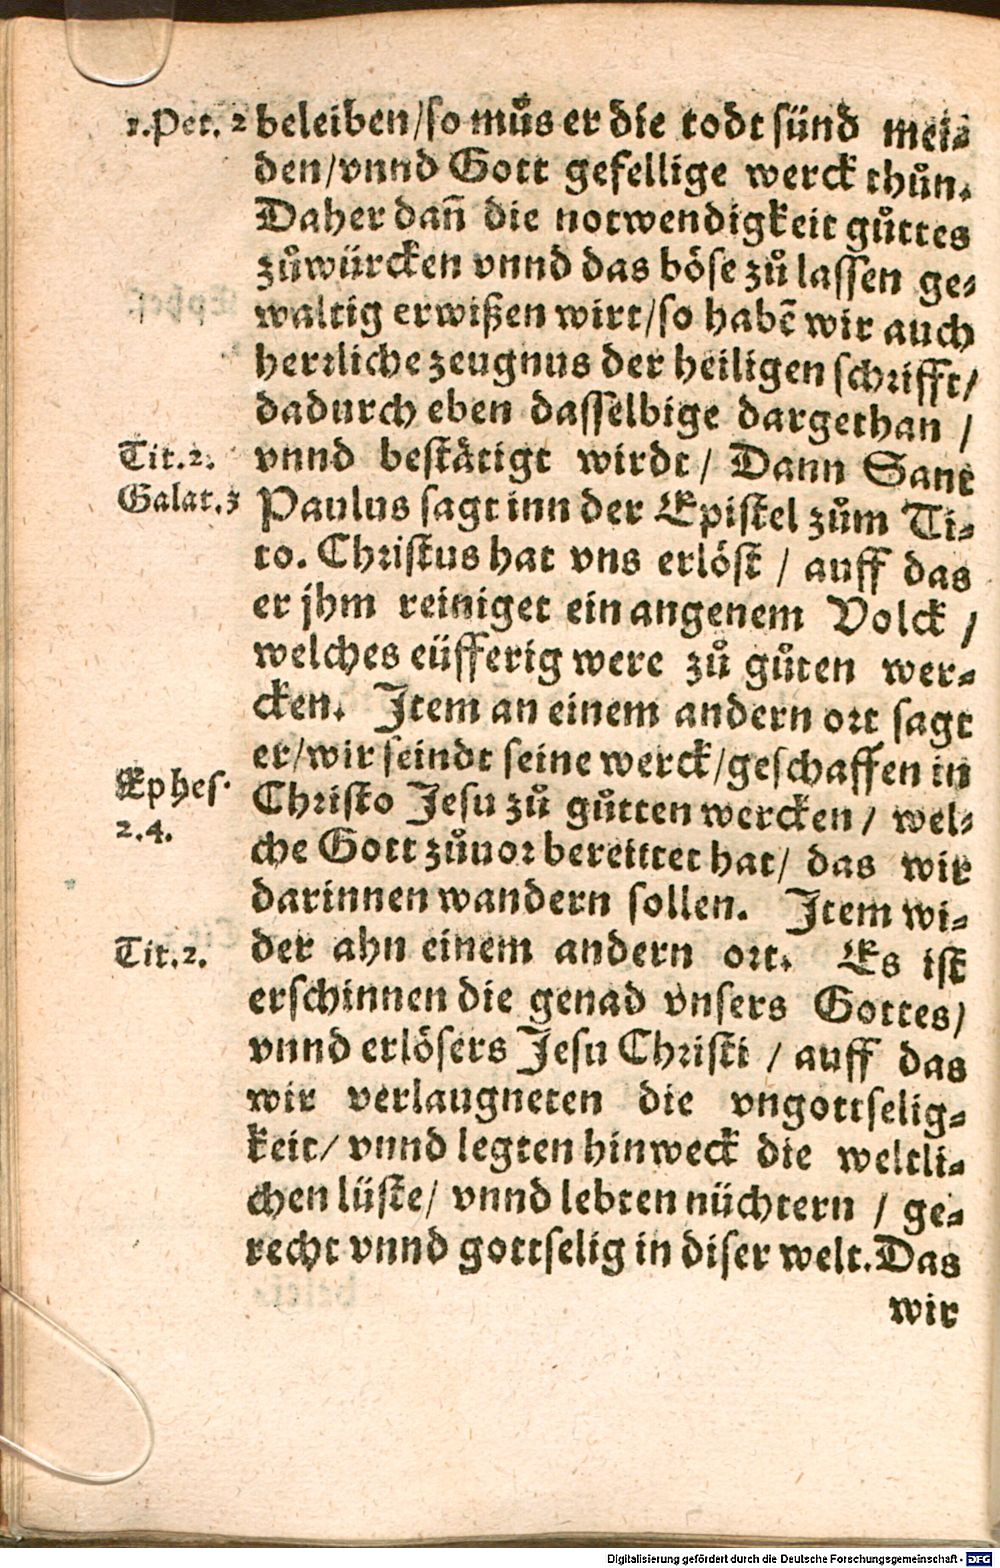 1.Pet. 2 beleiben/so můs er die todt sünd mei⸗
den/vnnd Gott gefellige werck thůn.
Daher dañ die notwendigkeit gůttes
zůwürcken vnnd das böse zů lassen ge⸗
waltig erwißen wirt/so habẽ wir auch
herꝛliche zeugnus der heiligen schrifft/
dadurch eben dasselbige dargethan /
Tit.2. vnnd bestätigt wirdt/ Dann Sant
Galat.3 Paulus sagt inn der Epistel zům Ti⸗
to. Christus hat vns erlöst / auff das
er jhm reiniget ein angenem Volck /
welches eüfferig were zů gůten wer⸗
cken. Item an einem andern ort sagt
er/wir seindt seine werck/geschaffen in
Ephes. Christo Jesu zů gůtten wercken / wel⸗
2.4. che Gott zůuor bereittet hat/ das wir
darinnen wandern sollen. Item wi⸗
Tit.2. der ahn einem andern ort. Es ist
erschinnen die genad vnsers Gottes/
vnnd erlösers Jesu Christi / auff das
wir verlaugneten die vngottselig⸗
keit/ vnnd legten hinweck die weltli⸗
chen lüste/ vnnd lebten nüchtern / ge⸗
recht vnnd gottselig in diser welt. Das
wir
Digitalisierung gefördert durch die Deutsche Forschungsgemeinschaft - DFG